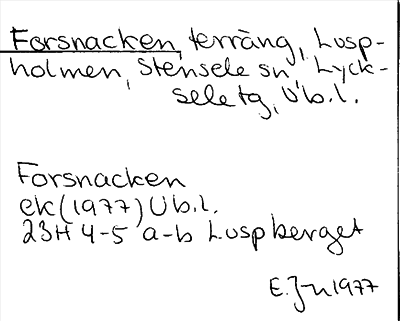 Forsnacken, terräng, Lusp-
holmen, Stensele sn, Lyck-
sele tg, Vb.l.
Forsnacken
ek (1977) Vb.l.
23H 4-5 a-b Luspberget
E. Jn 1977